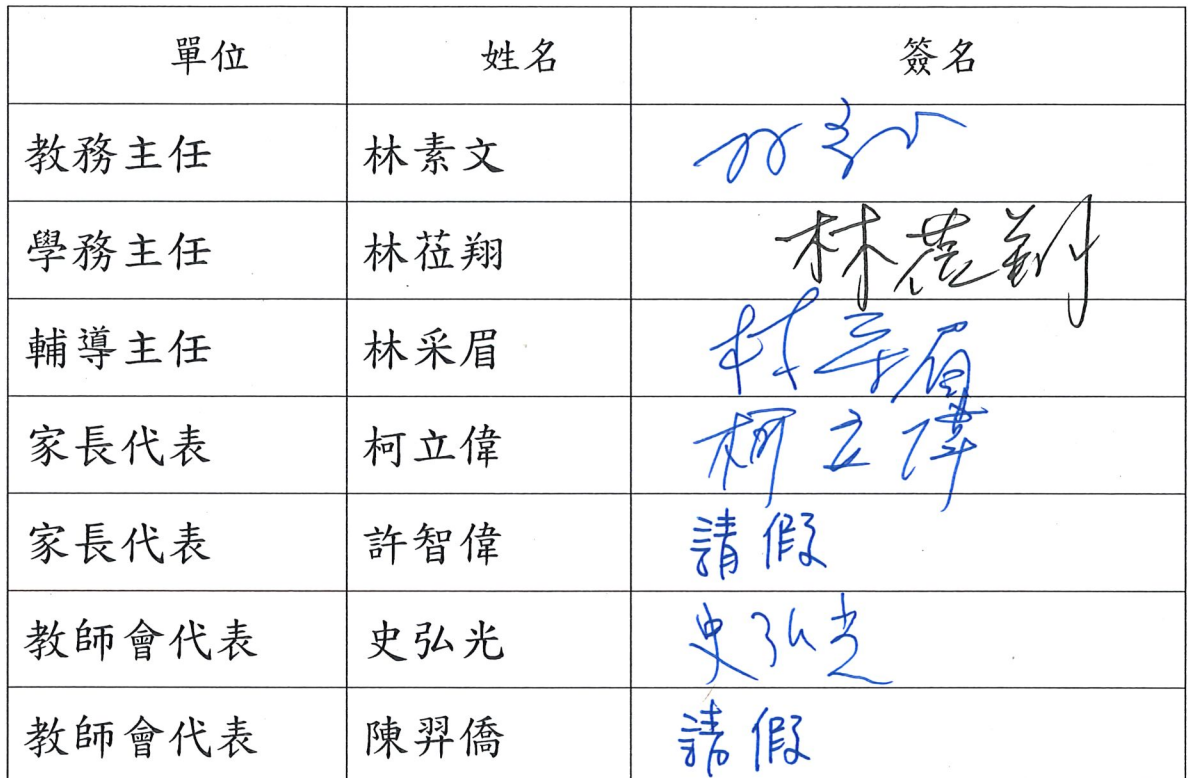 單位 姓名 簽名
教務主任 林素文
學務主任 林莅翔 林莅翔
輔導主任 林采眉 林采眉
家長代表 柯立偉 柯立偉
家長代表 許智偉 請假
教師會代表 史弘光 史弘光
教師會代表 陳羿僑 請假